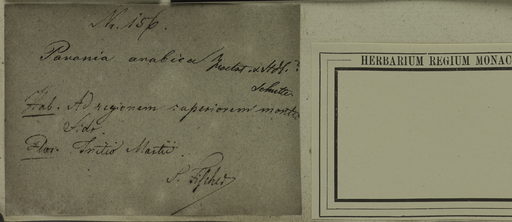 Nr. 156.
Pavania arabica Hochst. et Stdl.
Schutti
Hab. Ad regionem superiorem montis
Sidr.
Flor. Initio Martii.
S. Fischer
HERBARIUM REGIUM MONAC